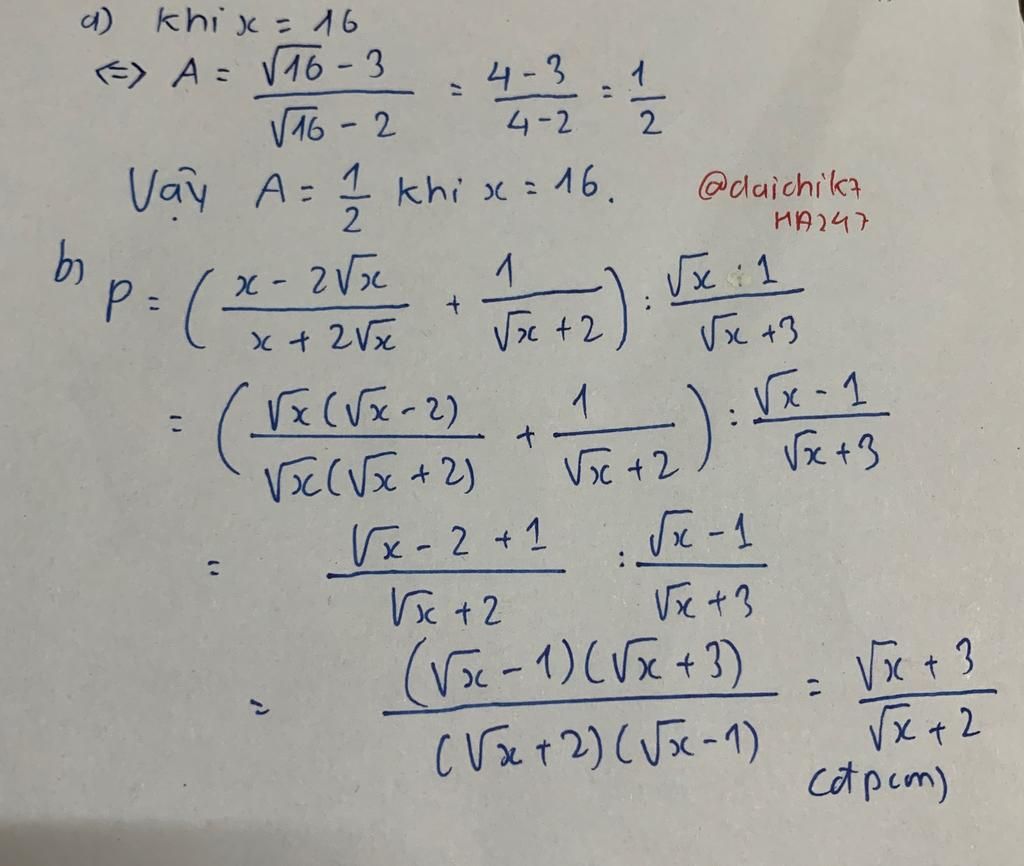 a) khi x = 16
<=> A = (√16 - 3)/(√16 - 2) = (4 - 3)/(4 - 2) = 1/2
Vậy A = 1/2 khi x = 16.
@daichik7
HA247
b) P = ((x - 2√x)/(x + 2√x) + 1/(√x + 2)) : (√x - 1)/(√x + 3)
= (√x(√x - 2)/√x(√x + 2) + 1/(√x + 2)) : (√x - 1)/(√x + 3)
= (√x - 2 + 1)/(√x + 2) : (√x - 1)/(√x + 3)
= (√x - 1)(√x + 3)/(√x + 2)(√x - 1) = (√x + 3)/(√x + 2)
(đpcm)